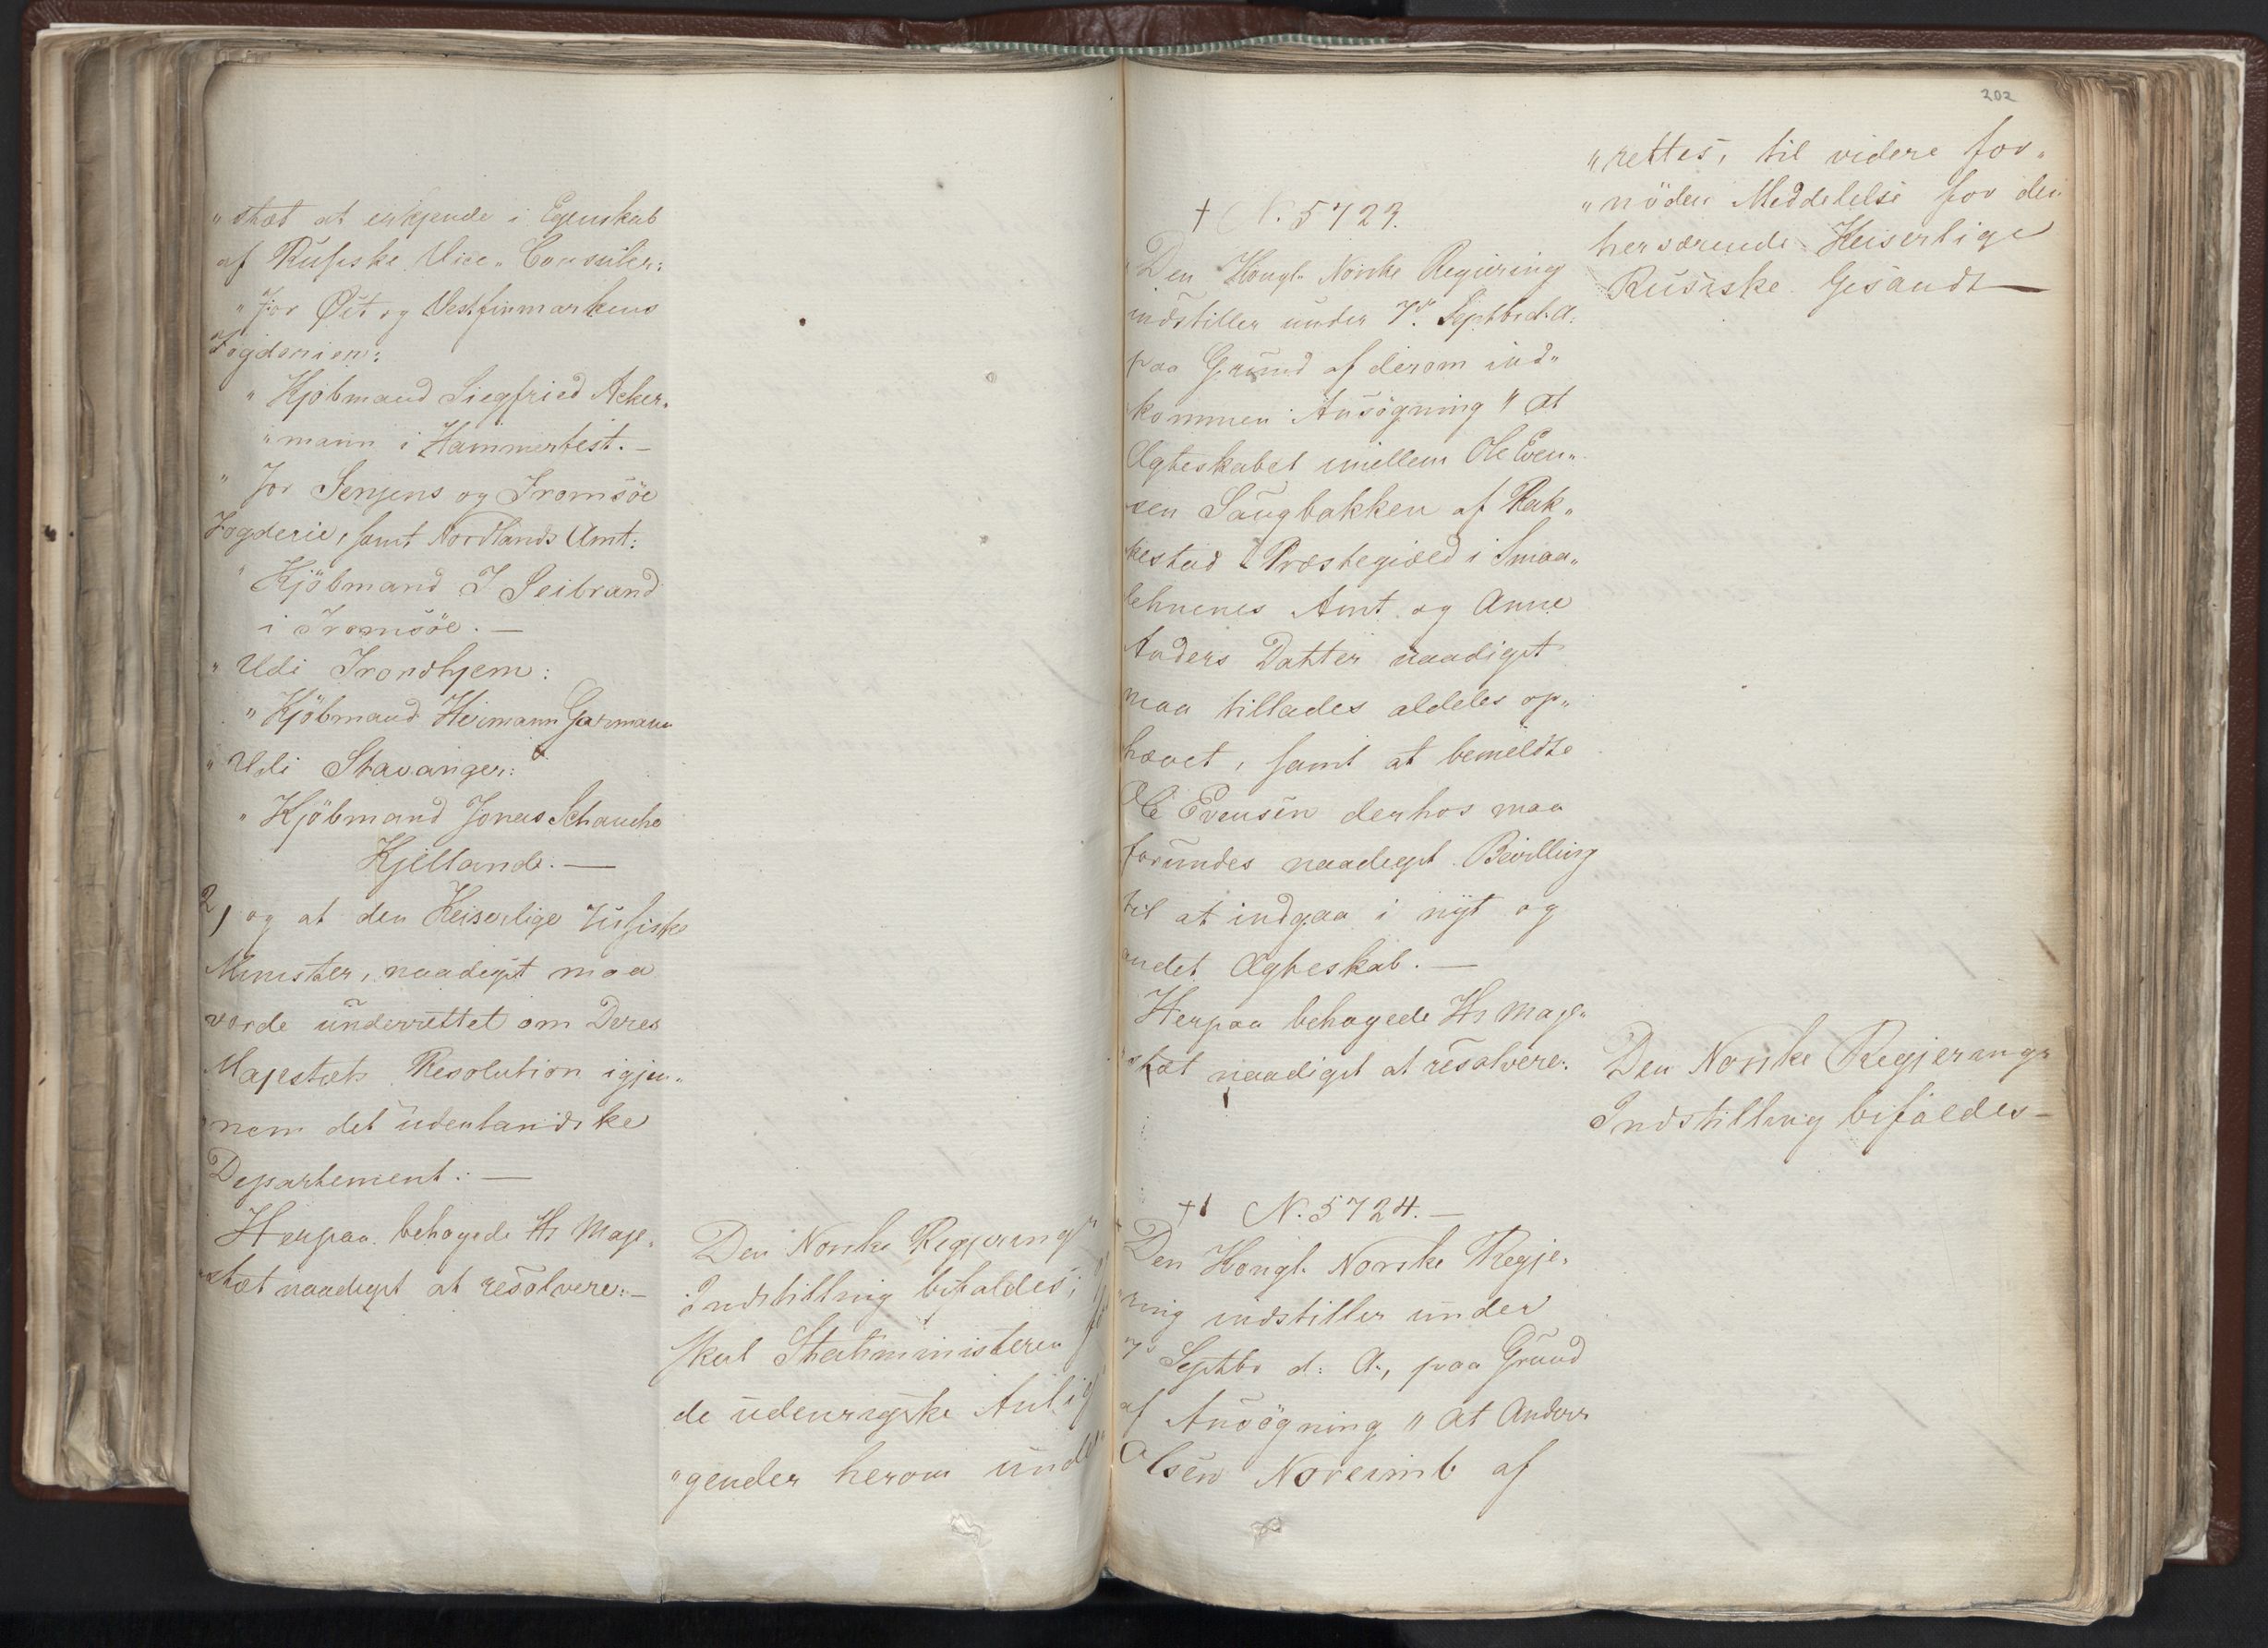 „stæt at erkjende i Egenskab
af Russiske Vice-Consuler:
„For Øst og Vestfinmarkens
Fogderier:
„Kjöbmand Siegfried Acker„
„mann i Hammerfest. —
„For Senjens og Tromsöe
Fogderie, samt Nordlands Amt:
„Kjöbmand J Seibrand
i Tromsöe. —
„Udi Trondhjem:
„Kjöbmand Hermann Garmann
„Udi Stavanger:
„Kjöbmand Jonas Schanche
Kjelland. —
2, og at den Keiserlige russiske
Minister, naadigst maa
vorde underrettet om Deres
Majestæts Resolution igjen„
nem det udenlandske
Departement: —
Herpaa behagede Hs Maje„
„stæt naadigst at resolvere: —
Den Norske Regjerings
Indstilling bifaldes;
skal Statsministeren
de udenrigske Anlig
„gender herom und
202
† N. 5723.
Den Kongl. Norske Regiering
indstiller under 7de Septbr d. A.
paa Grund af derom ind„
kommen Ansögning „at
Ægteskabet imellem Ole Even„
sen Saugbakken af Rak„
kestad Præstegield i Smaa„
lehnenes Amt og Anne
Anders Datter naadigst
maa tillades aldeles op„
hævet, samt at bemeldte
Ole Evensen derhos maa
forundes naadigst Bevilling
til at indgaa i nyt og
andet Ægteskab. —
Herpaa behagede Hs Maje„
„stæt naadigst at resolvere:
† N. 5724. —
Den Kongl. Norske Regje„
ring indstiller under
7de Septbr d: A., paa Grund
af Ansögning „at Anders
Olsen Noreimb af
„rettes, til videre for„
„nöden Meddelelse for den
herværende Keiserlige
Russiske Gesandt —
Den Norske Regjerings
Indstilling bifaldes —